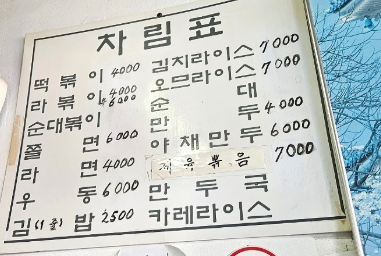 차림표
떡볶이 4000
라볶이 4000
순대볶이
쫄면 6000
라면 4000
우동 6000
김(1줄)밥 2500
김치라이스 7000
오므라이스 7000
순대
만두 4000
야채만두 6000
제육볶음 7000
만두국
카레라이스